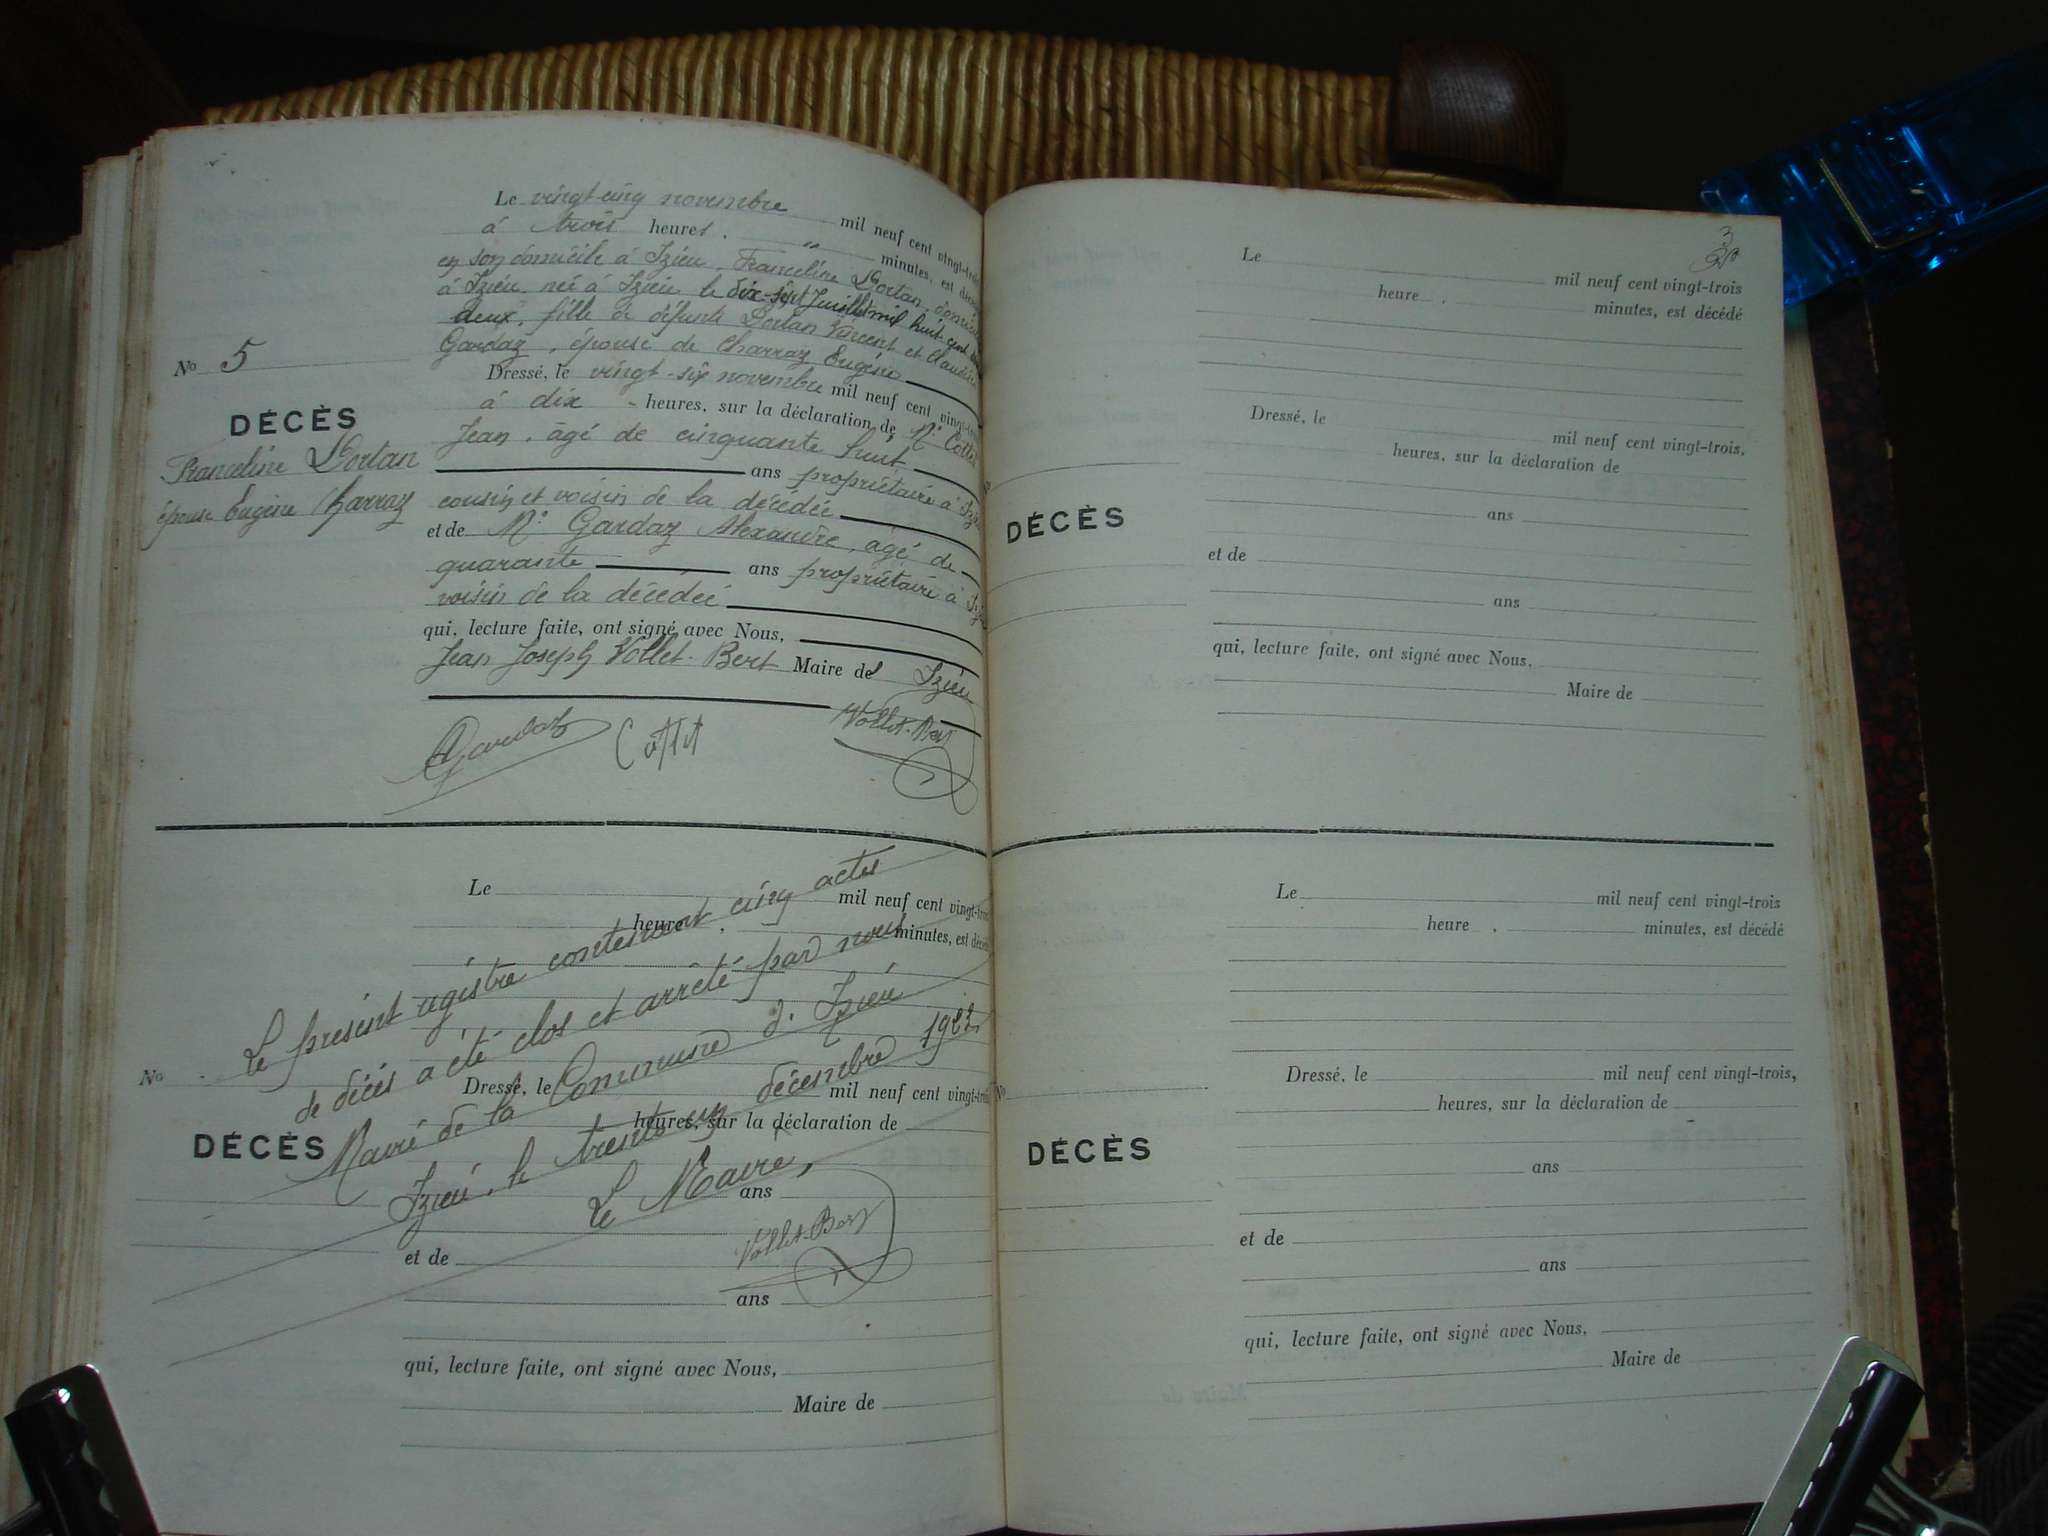 Le vingt-cinq novembre mil neuf cent vingt-trois
à trois heures. " minutes, est décédé
en son domicile à Izieu, Franceline Dortan domiciliée
à Izieu née à Izieu le dix-sept Juillet mil huit cent
deux, fille de défunts Dortan Vincent et Claudine
Gardaz, épouse de Charraz Eugène
Dressé, le vingt-six novembre mil neuf cent vingt-trois
à dix heures, sur la déclaration de Mr Cottet
Jean, âgé de cinquante huit
ans propriétaire à Izieu
cousin et voisin de la décédée
et de Mr Gardaz Alexandre, âgé de
quarante ans propriétaire à Izieu
voisin de la décédée
qui, lecture faite, ont signé avec Nous,
Jean Joseph Vollet-Bert Maire d' Izieu
AGardaz Cottet Vollet-Bert
No 5
DÉCÈS
Franceline Dortan
épouse Eugène Charraz
Le mil neuf cent vingt-trois
heure . minutes, est décédé
No
DÉCÈS
Dressé, le mil neuf cent vingt-trois
heures, sur la déclaration de
ans
et de
ans
qui, lecture faite, ont signé avec Nous,
Maire de
Le présent registre contenant cinq actes
de décès a été clos et arrêté par nous
Maire de la Commune d'Izieu
Izieu, le trente un décembre 1923
Le Maire,
Vollet-Bert
3
Le mil neuf cent vingt-trois
heure . minutes, est décédé
Dressé, le mil neuf cent vingt-trois,
heures, sur la déclaration de
DÉCÈS
ans
et de
ans
qui, lecture faite, ont signé avec Nous,
Maire de
Le mil neuf cent vingt-trois
heure . minutes, est décédé
Dressé, le mil neuf cent vingt-trois,
No
heures, sur la déclaration de
DÉCÈS
ans
et de
ans
qui, lecture faite, ont signé avec Nous,
Maire de